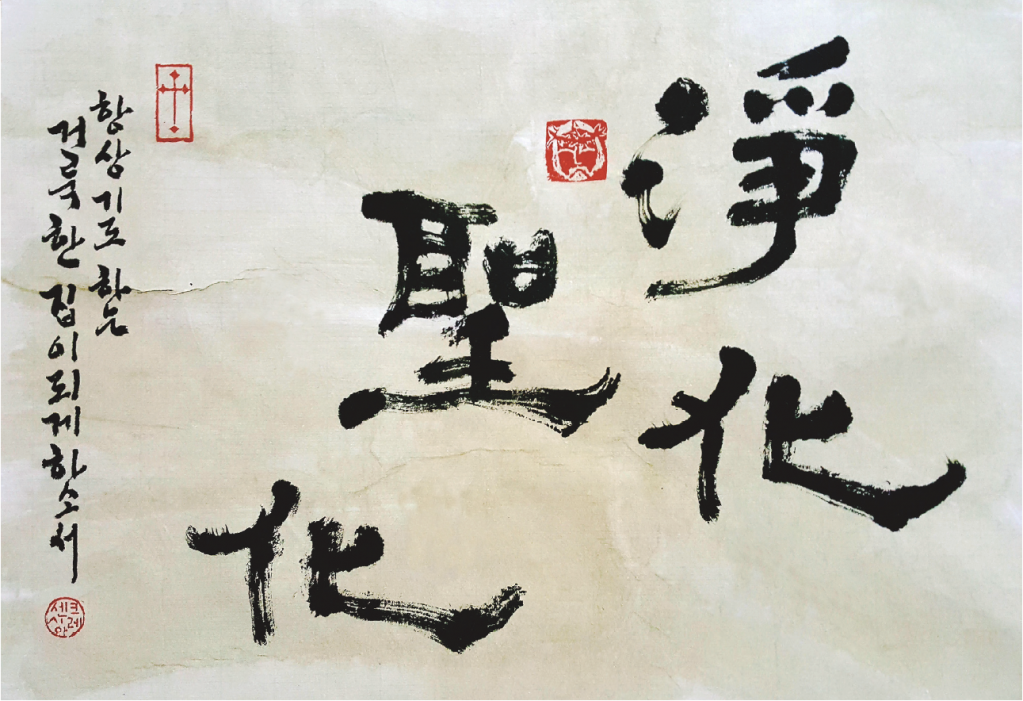 淨化
聖化
항상 기도하는
거룩한 집이 되게 하소서